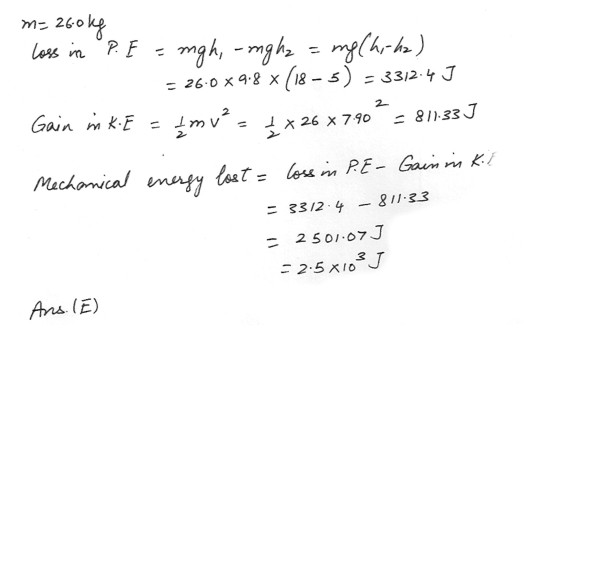 m= 26.0 kg
Loss in P.E = mgh₁ - mgh₂ = mg(h₁-h₂)
= 26.0 × 9.8 × (18 - 5) = 3312.4 J
Gain in K.E = ½ m v² = ½ × 26 × 7.90² = 811.33 J
Mechanical energy lost = Loss in P.E - Gain in K.E
= 3312.4 - 811.33
= 2501.07 J
= 2.5 × 10³ J
Ans. (E)